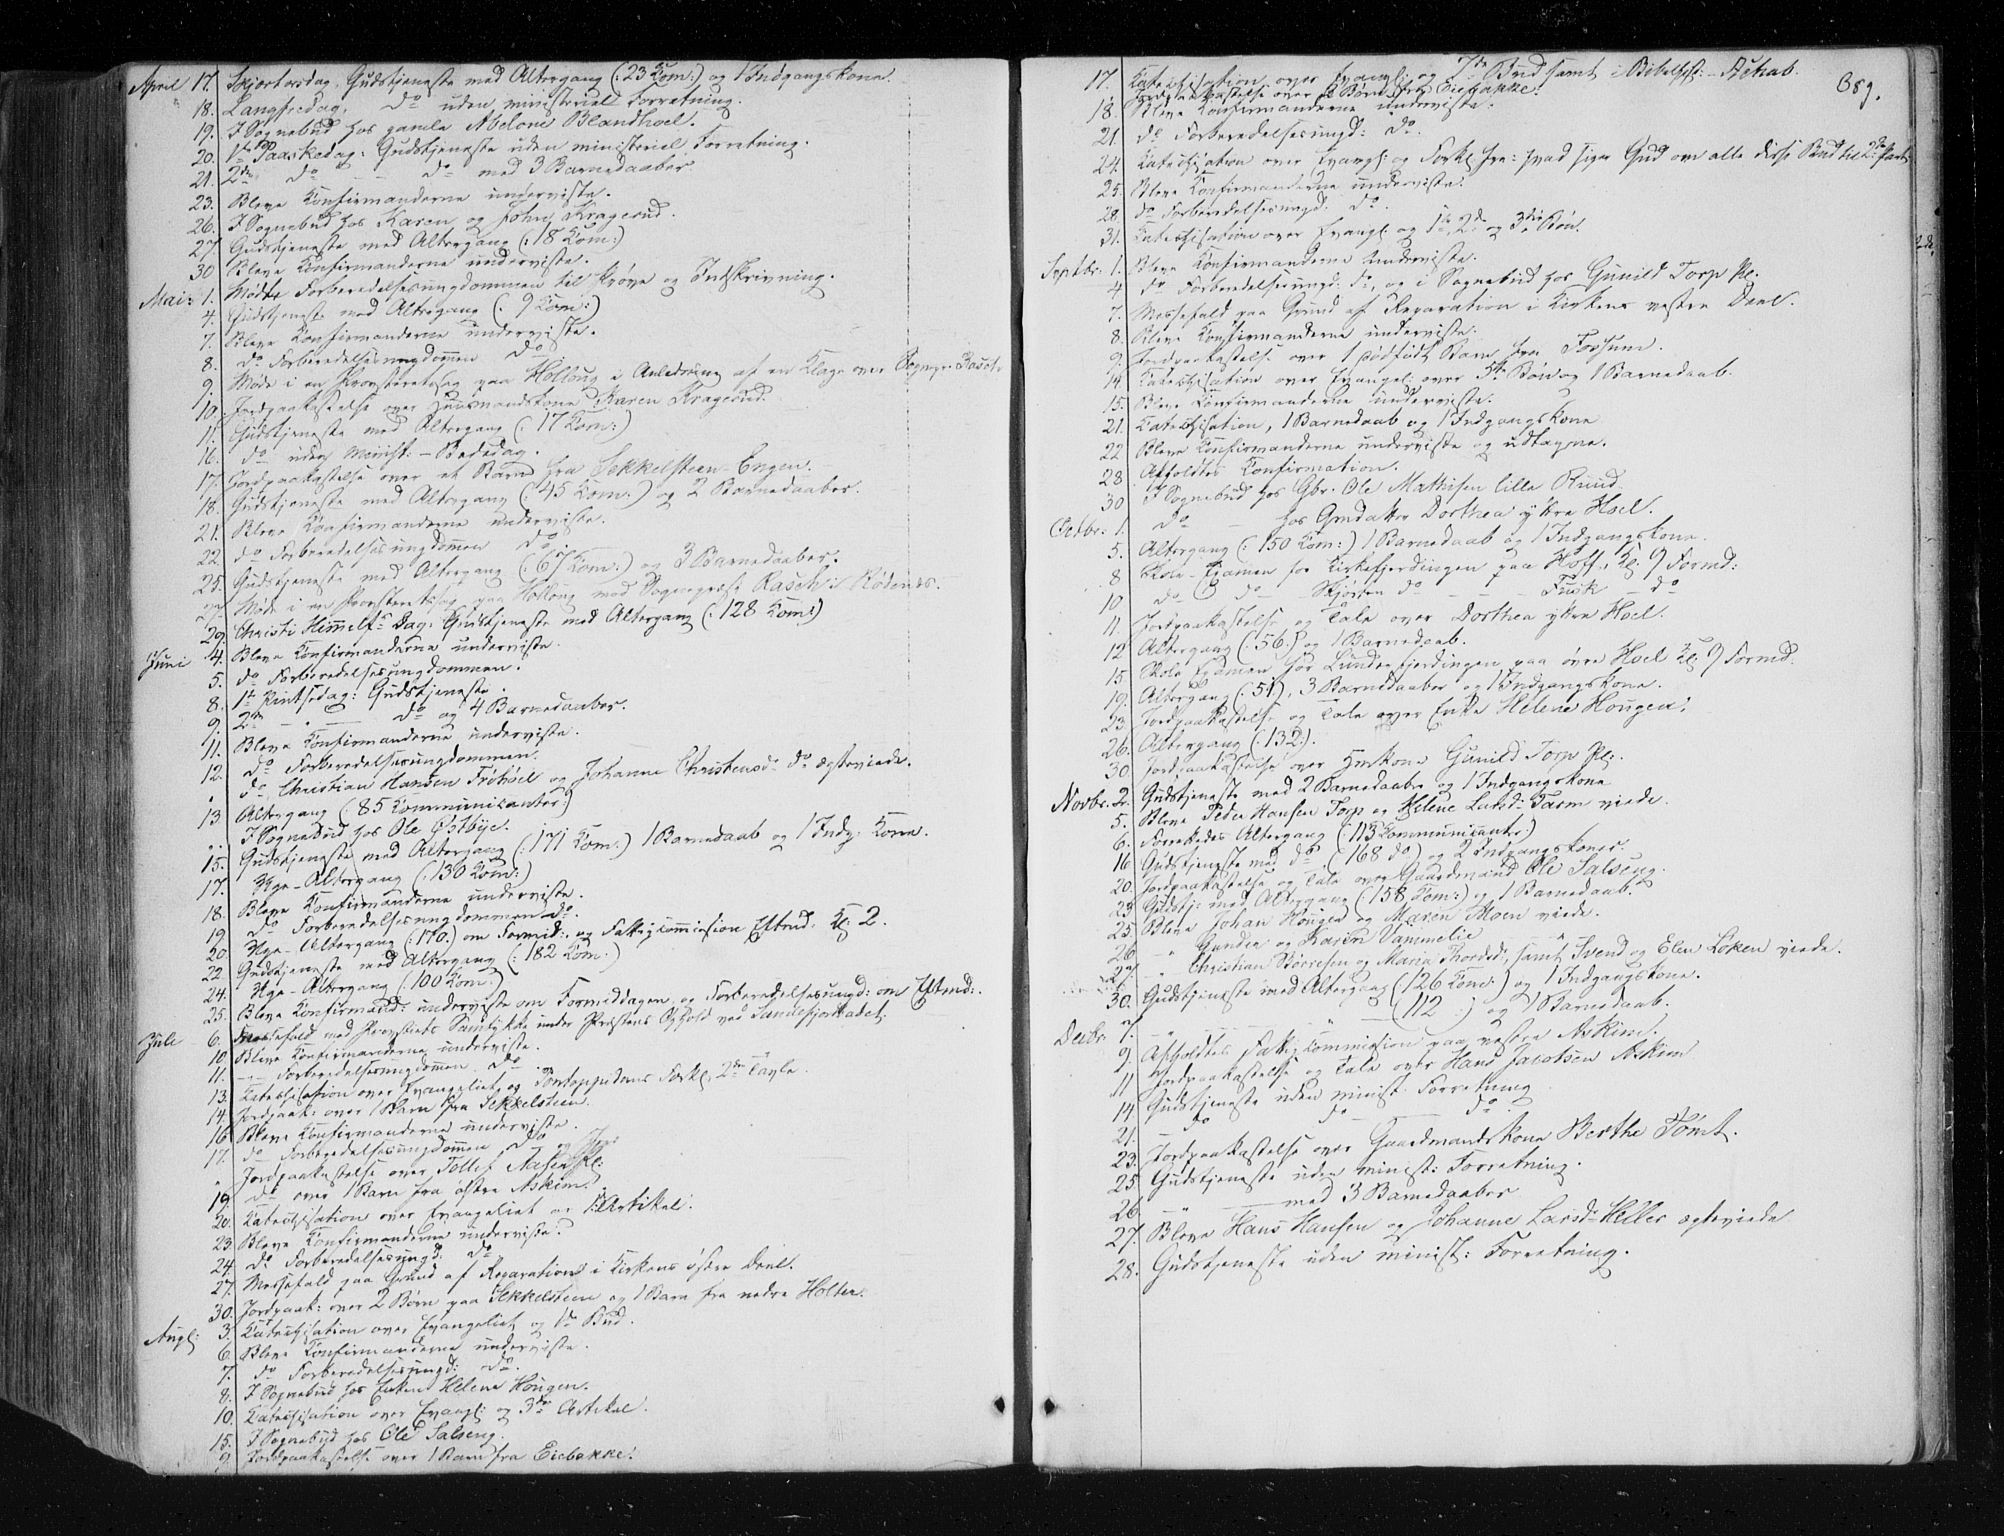 April 17. Skjertorsdag, Gudstjeneste med Altergang (:23 Kom:) og 1 Indgangskone.
18. Langfredag, do uden ministeriel Forretning.
19. I Sognebud hos gamle Blandhoel.
20. 1ste Paaskedag: Gudstjeneste uden ministeriel Forretning.
21. 2den do — do med 3 Barnedaaber.
23. Bleve Konfirmanderne underviste.
26. I Sognebud hos Karen og John Kragerud.
27. Gudstjeneste med Altergang (:18 Kom:)
30 Bleve Konfirmanderne underviste.
Mai: 1. Mødte Forberedelsesungdommen til Prøve og Indskrivning.
4. Gudstjeneste med Altergang (:9 Kom:)
7. Bleve Konfirmanderne underviste.
8. do Forberedelsesungdommen do
9. Møde i en Provsteretssag paa Holloug i Anledning af en Klage over Sognepr: Rasch.
10. Jordpaakastelse over Huusmandskone Karen Kragerud.
11. Gudstjeneste med Altergang (:17 Kom:)
16. do uden Minist: - Bededag.
17. Jordpaakastelse over et Barn fra Sekkelsteen-Engen.
18. Gudstjeneste med Altergang (:45 Kom:) og 2 Barnedaaber.
21. Bleve Konfirmanderne underviste.
22. do Forberedelsesungdommen do
25. Gudstjeneste med Altergang (:67 Kom:) og 3 Barnedaaber.
27 Møde i en Provsteretssag paa Holloug mod Sognepræst Rasch i Rødenes.
29. Christi Himmelfs Dag: Gudstjeneste med Altergang (:128 Kom:)
Juni 4. Bleve Konfirmanderne underviste.
5. do Forberedelsesungdommen.
8. 1ste Pintsedag: Gudstjeneste.
9. 2den — do og 4 Barnedaaber.
11. Bleve Konfirmanderne underviste.
12. do Forberedelsesungdommen.
" do Christian Hansen Frøhoel og Johanne Christensd: do ægteviede.
13 Altergang (85 Kommunikanter:)
" I Sognebud hos Ole Østbye.
15. Gudstjeneste med Altergang (:171 Kom:) 1 Barnedaab og 1 Indg: Kone.
17. Hge-Altergang (:130 Kom:)
18. Bleve Konfirmanderne underviste.
19 do Forberedelsesungdommen do.
20. Hge-Altergang (:170:) om Formid: og Fattigcommission Eftmd: Kl. 2.
22. Gudstjeneste med Altergang (:182 Kom:)
24. Hge-Altergang (100 Kom:)
25. Bleve Konfirmand: underviste om Formiddagen og Forberedelsesungd: om Eftmd:.
Juli 6. Messefald med Provstiets Samtykke under Præstens Ophold ved Sandefjordbadet.
10 Bleve Konfirmanderne underviste.
11. — Forberedelsesungdommen do
13. Katechisation over Evangeliet og Pontoppidans Forkl: 2den Tavle.
14. Jordpaak: over 1 Barn fra Sekkelsteen.
16 Bleve Konfirmanderne underviste.
17. do Forberedelsesungdommen do
" Jordpaakastelse over Tollef Aasen Pl:
19. do over 1 Barn fra østre Askim.
20. Katechisation over Evangeliet og 1. Artikel.
23 Bleve Konfirmanderne underviste.
24 do Forberedelsesungd: do
27. Messefald paa Grund af Reparation i Kirkens østre Deel.
30. Jordpaak: over 2 Børn paa Sekkelsteen og 1 Barn fra nedre Holter.
Augs: 3. Katechisation over Evangeliet og 1ste Bud.
6. Bleve Konfirmanderne underviste.
7. do Forberedelsesungd: do.
8. I Sognebud hos Enken Helene Hougen.
10. Katechisation over Evangl: og 3die Artikel.
15. I Sognebud hos Ole Salseng.
9 Jordpaakastelse over 1 Barn fra Eiebakke.
389.
17. Katechisation over Evangl: og 7de Bud samt i Bibelhist: - Achab.
" Jordpaakastelse over 2 Børn fra Eiebakke.
18. Bleve Konfirmanderne underviste.
21. do Forberedelsesungd: do.
24. Katechisation over Evangl: og Forkl. fra: hvad siger Gud om alle disse Bud til 2den Part.
25. Bleve Konfirmanderne underviste.
28. do Forberedelsesungd: do.
31. Katechisation over Evangl: og 1ste, 2den og 3die Bøn.
Septbr: 1. Bleve Konfirmanderne underviste.
4. do Forberedelsesungd: do, og i Sognebud hos Gunild Torp Pl.
7. Messefald paa Grund af Reparation i Kirkens vestre Deel.
8. Bleve Konfirmanderne underviste.
9. Jordpaakastelse over 1 dødfødt Barn fra Fossum.
14. Katechisation over Evangel: over 5te Bøn og 1 Barnedaab.
15. Bleve Konfirmanderne underviste.
21. Katechisation, 1 Barnedaab og 1 Indgangskone
22 Bleve Konfirmanderne underviste og udtagne.
28 Afholdtes Konfirmation.
30 I Sognebud hos Gbr. Ole Mathisen lille Ruud.
Octbr: 1. do — hos Grndatter Dorthea ytre Hoel.
5. Altergang (:150 Kom:) 1 Barnedaab og 1 Indgangskone.
8 Skole-Examen for Kirkefjerdingen paa Hoff, Kl: 9 Formd:
10 do — do — Skjørten do — Fusk — do
11. Jordpaakastelse og Tale over Dorthea ytre Hoel.
12 Altergang (:56:) og 1 Barnedaab.
15. Skole Examen for Lundsfjerdingen paa øvre Hoel Kl. 9 Formd.
19. Altergang (:51:), 3 Barnedaaber og 1 Indgangskone.
23 Jordpaakastelse og Tale over Enke Helene Hougen.
26. Altergang (:132:).
30. Jordpaakastelse over Hmkone Gunild Torp Pl:.
Novbr. 2. Gudstjeneste med 2 Barnedaaber og 1 Indgangskone
5. Bleve Peder Hansen Torp og Helene Larsd: Tarm viede.
6. Foretoges Altergang (:113 Kommunicanter)
16 Gudstjeneste med do (168 do) og 2 Indgangskoner.
20. Jordpaakastelse og Tale over Gaardmand Ole Salseng.
23 Gudstj: med Altergang (:158 Kom:) og 1 Barnedaab.
25. Bleve Johan Hougen og Maren Moen viede.
26. — Gunder og Karen Vammelie
27. — " Christian Børresen og Maria Thordsd:, samt Svend og Elen Løken viede.
30. Gudstjeneste med Altergang (126 Kom:) og 1 Indgangskone.
Decbr. 7. — " — (112 :) og 1 Barnedaab.
9. Afholdtes Fatig Kommission paa vestre Askim.
11 Jordpaakastelse og Tale over Hans Jacobsen Askim
14. Gudstjeneste uden minist: Forretning
21. — do — do — do
23. Jordpaakastelse over Gaardmandskone Berthe Tømt.
25. Gudstjeneste uden minist: Forretning.
26. — " — med 3 Barnedaaber
27. Bleve Hans Hansen og Johanne Larsd: Heller ægteviede
28. Gudstjeneste uden minist: Forretning.